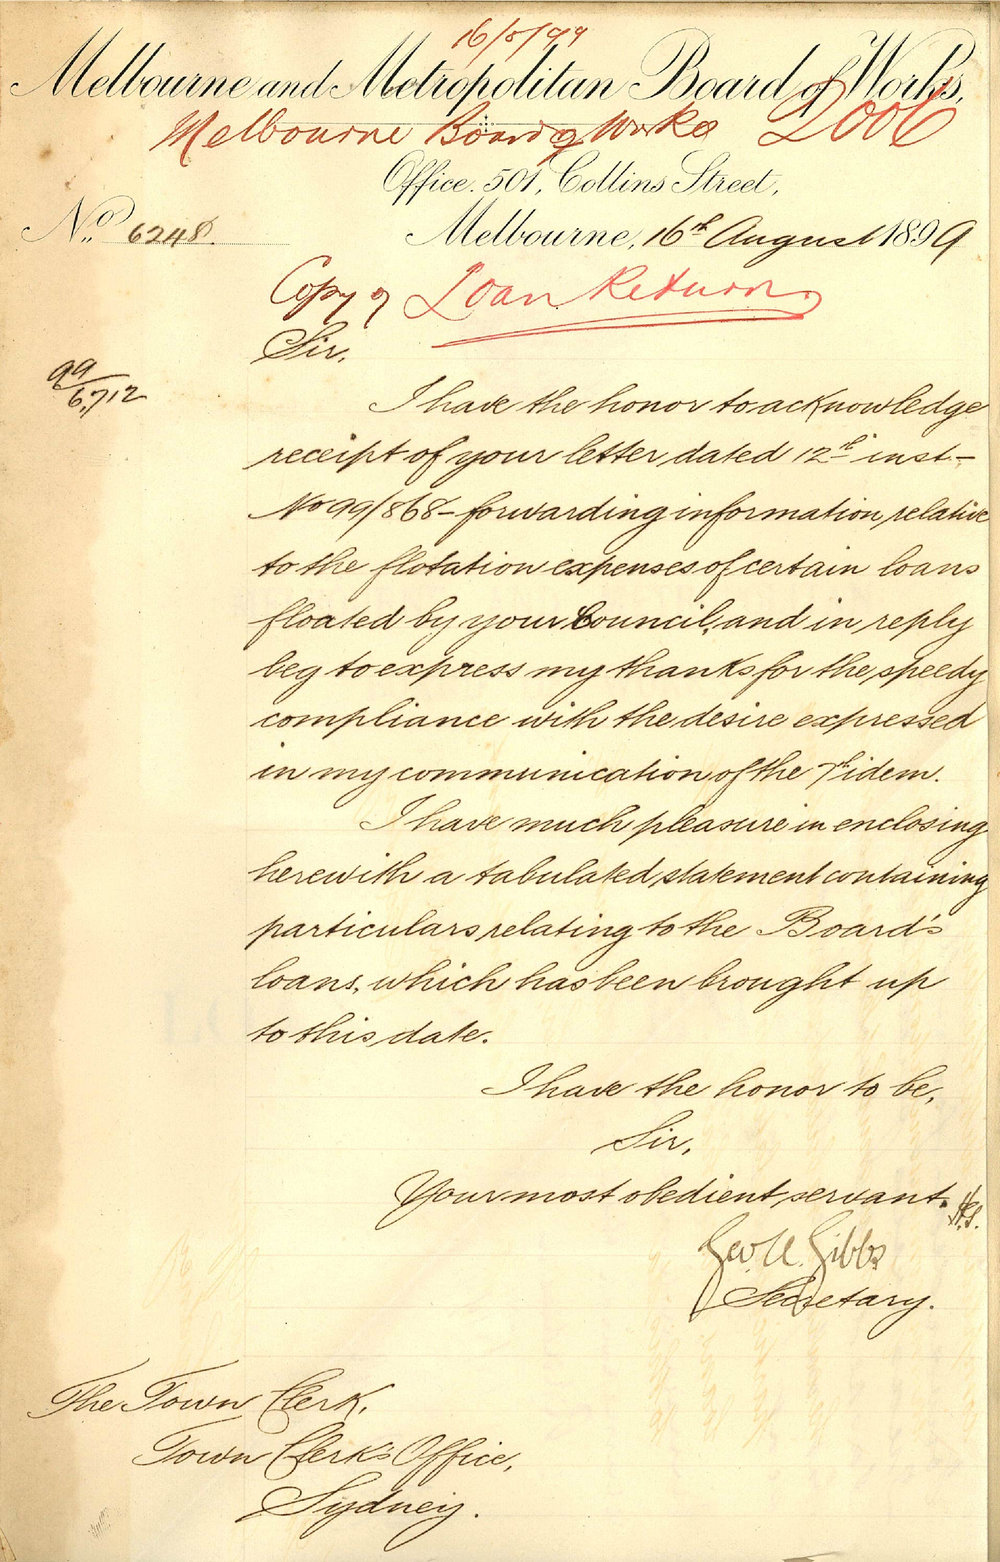 16/8/99
Melbourne and Metropolitan Board of Works.
Melbourne Board of Works 2006
Office. 501, Collins Street,
No. 6248. Melbourne, 16th August 1899
Copy of Loan Return
Sir,
99/6,712
I have the honor to acknowledge
receipt of your letter dated 12th inst–
No 99/868– forwarding information relative
to the flotation expenses of certain loans
floated by your Council, and in reply
beg to express my thanks for the speedy
compliance with the desire expressed
in my communication of the 7th idem.
I have much pleasure in enclosing
herewith a tabulated statement containing
particulars relating to the Board's
loans, which has been brought up
to this date.
I have the honor to be,
Sir,
Your most obedient servant.
Geo. A. Gibbs
Secretary.
The Town Clerk,
Town Clerk's Office,
Sydney.